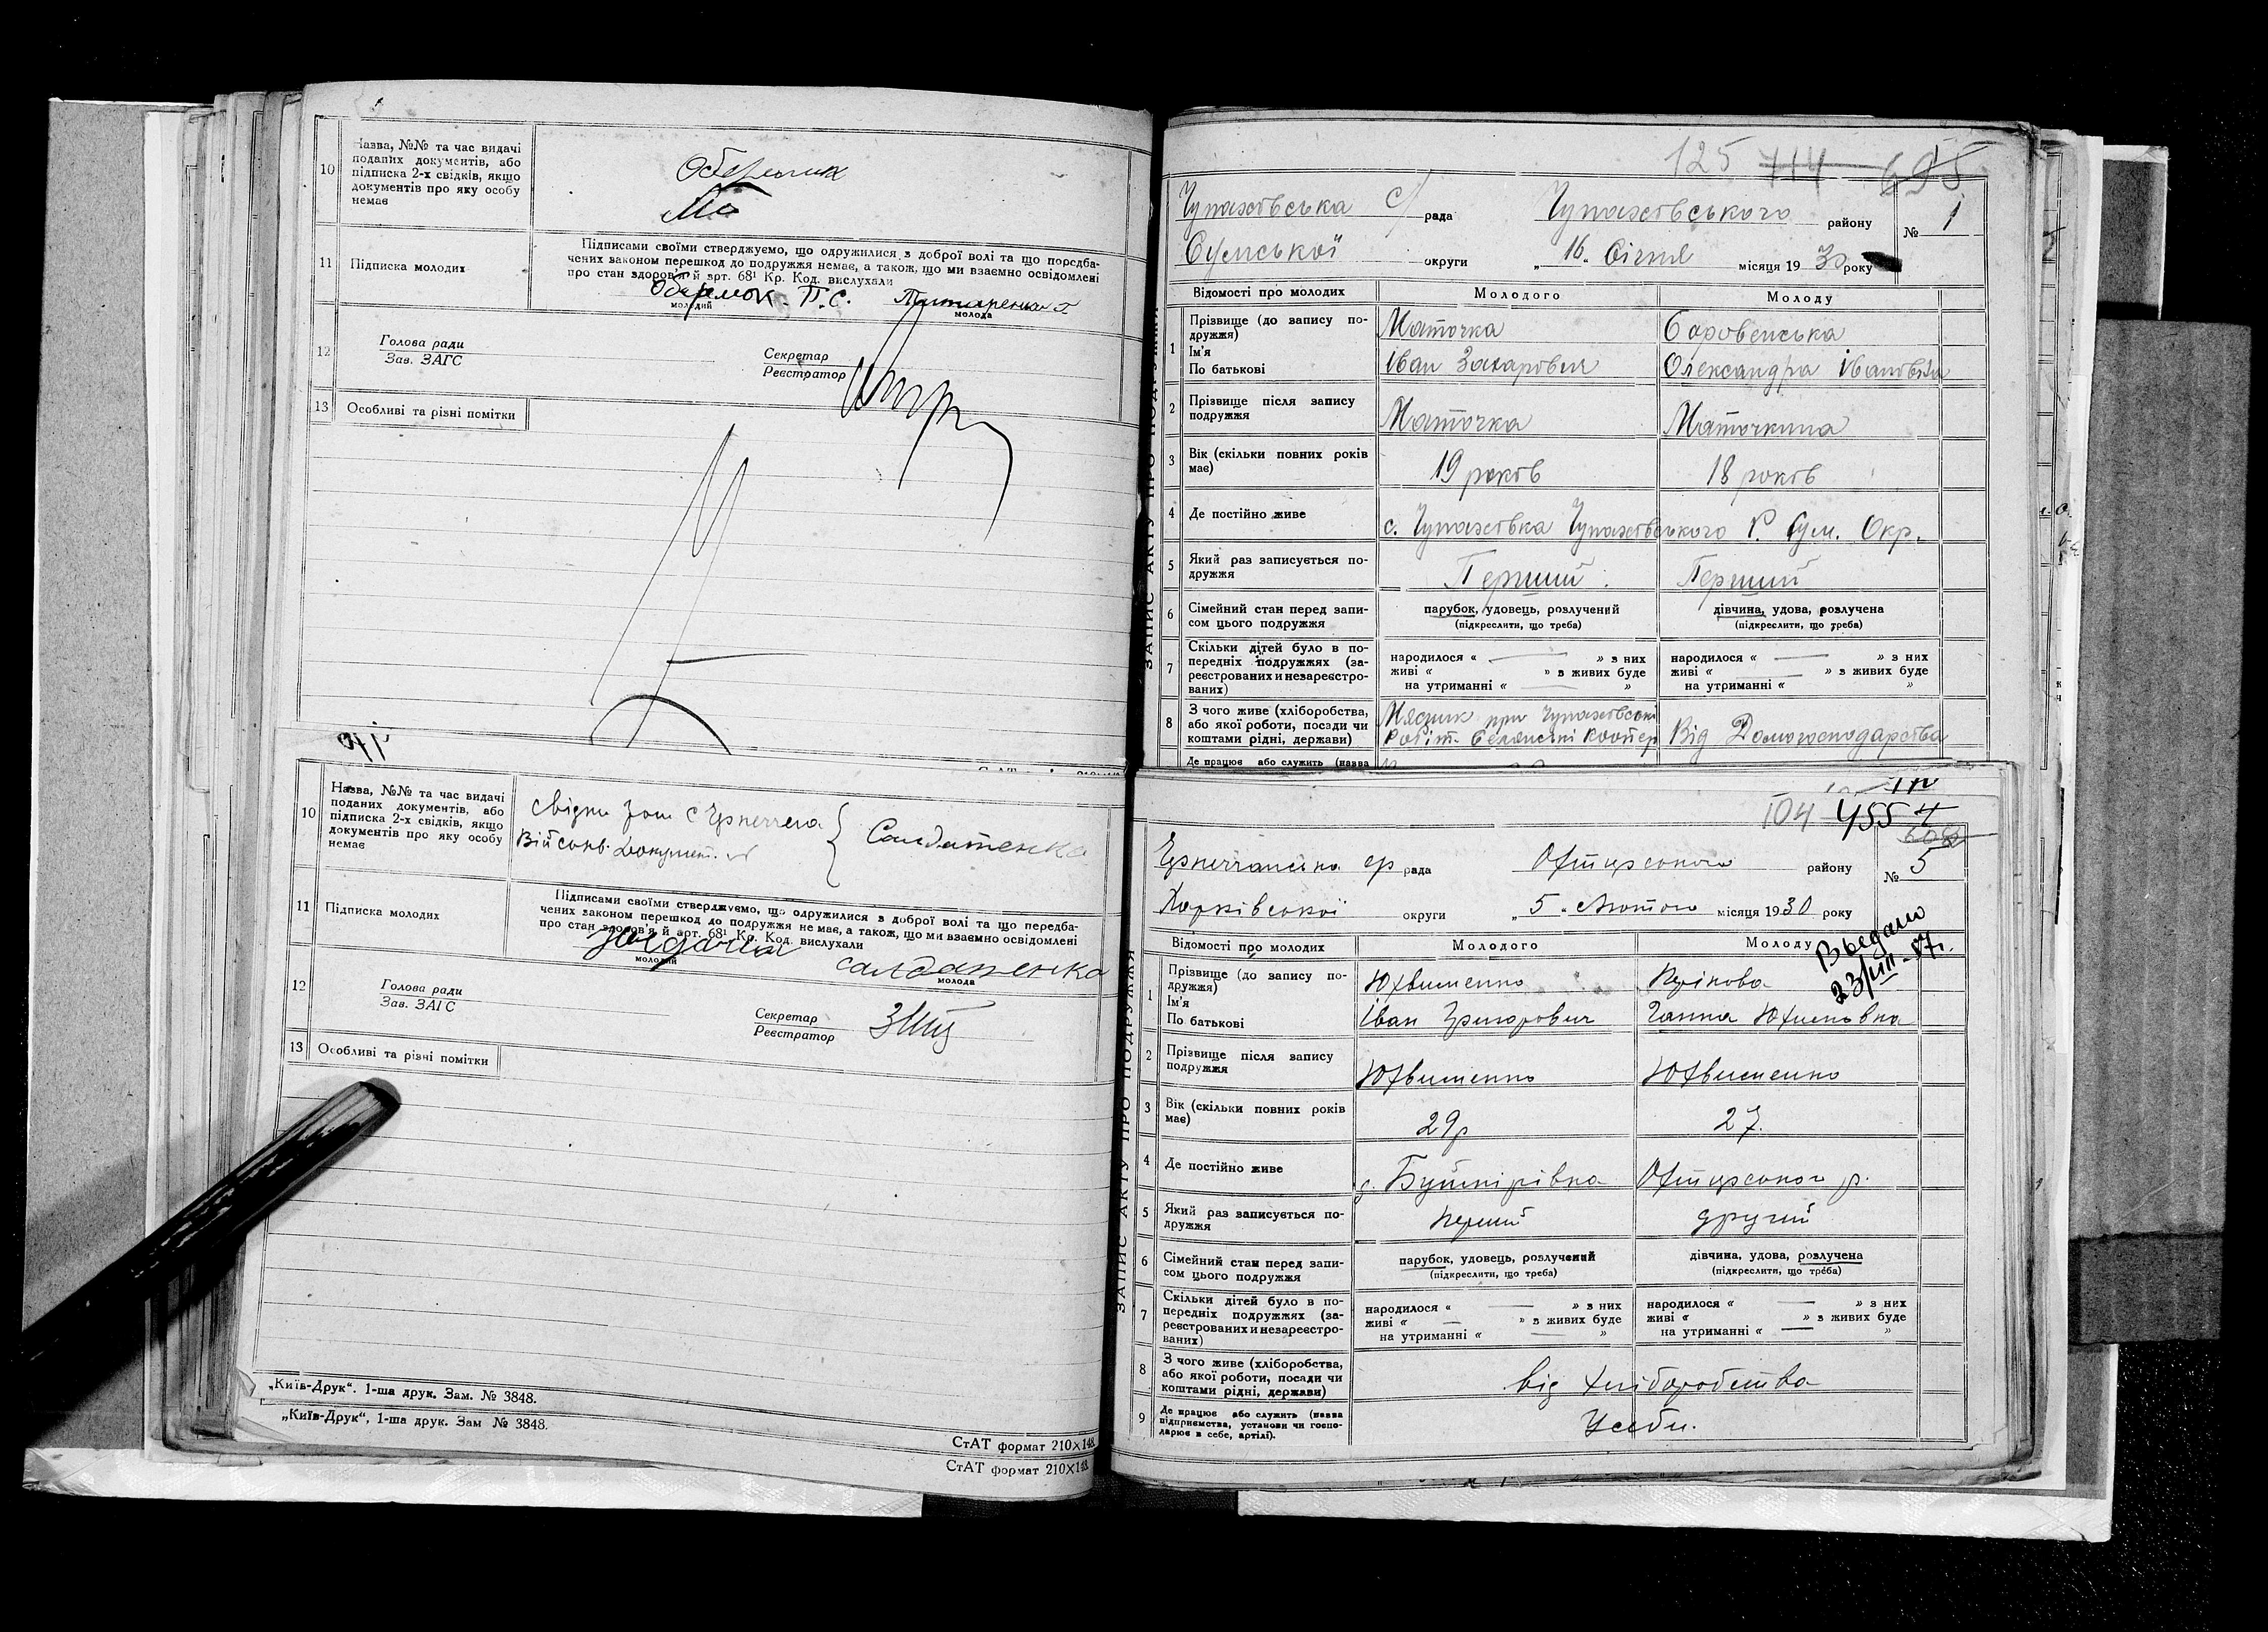 10
Назва, №№ та час видачі
поданих документів, або
підписка 2-х свідків, якщо
документів про яку особу
немає
11
Підписка молодих
Підписами своїми стверджуємо, що одружилися з доброї волі та що передба-
чених законом перешкод до подружжя немає, а також, що ми взаємно освідомлені
про стан здоров'я й арт. 68¹ Кр. Код. вислухали
П. С.
молодий
молода
12
Голова ради
Зав. ЗАГС
Секретар
Реєстратор
13
Особливі та різні помітки
10
Назва, №№ та час видачі
поданих документів, або
підписка 2-х свідків, якщо
документів про яку особу
немає
Салдатенко
11
Підписка молодих
Підписами своїми стверджуємо, що одружилися з доброї волі та що передба-
чених законом перешкод до подружжя немає, а також, що ми взаємно освідомлені
про стан здоров'я й арт. 68¹ Кр. Код. вислухали
молодий
салдатенка
молода
12
Голова ради
Зав. ЗАГС
Секретар
Реєстратор
13
Особливі та різні помітки
„Київ-Друк“. 1-ша друк. Зам. № 3848.
„Київ-Друк“, 1-ша друк. Зам № 3848.
СтАТ формат 210×148.
СтАТ формат 210×148.
125 714 695
Чупахівська с/ рада Чупахівського району № 1
Сумської округи „16„ Січня місяця 1930 року
ЗАПИС АКТУ ПРО ПОДРУЖЖЯ
Відомості про молодих Молодого Молоду
1 Прізвище (до запису по-
дружжя) Маточка Боровенська
Ім'я
По батькові Іван Захарович Олександра Івановна
2 Прізвище після запису
подружжя Маточка Маточкина
3 Вік (скільки повних років
має) 19 років 18 років
4 Де постійно живе с. Чупахівка Чупахівського Р. Сум. Окр.
5 Який раз записується по-
дружжя Перший Перший
6 Сімейний стан перед запи-
сом цього подружжя
парубок, удовець, розлучений
(підкреслити, що треба)
дівчина, удова, розлучена
(підкреслити, що треба)
7 Скільки дітей було в по-
передніх подружжях (за-
реєстрованих и незареєстро-
ваних)
народилося « — » з них
живі « » в живих буде
на утриманні « — »
народилося « — » з них
живі « — » в живих буде
на утриманні « »
8 З чого живе (хліборобства,
або якої роботи, посади чи
коштами рідні, держави)
Мясник при Чупахівські
Робіт. Селянські Коопер
Від Домогосподарства
Де працює або служить (назва
104 455
608
рада Охтирського району № 5
Харківської округи „5„ Лютого місяця 1930 року
Выдано
23/VIII-57г.
ЗАПИС АКТУ ПРО ПОДРУЖЖЯ
Відомості про молодих Молодого Молоду
1 Прізвище (до запису по-
дружжя) Юхвименко
Ім'я
По батькові Іван Григорович Ганна Юхимовна
2 Прізвище після запису
подружжя Юхвименко Юхвименко
3 Вік (скільки повних років
має) 29р 27.
4 Де постійно живе с. Буймірівка Охтирського р.
5 Який раз записується по-
дружжя перший другий
6 Сімейний стан перед запи-
сом цього подружжя
парубок, удовець, розлучений
(підкреслити, що треба)
дівчина, удова, розлучена
(підкреслити, що треба)
7 Скільки дітей було в по-
передніх подружжях (за-
реєстрованих и незареєстро-
ваних)
народилося « — » з них
живі « — » в живих буде
на утриманні « — »
народилося « — » з них
живі « » в живих буде
на утриманні « — »
8 З чого живе (хліборобства,
або якої роботи, посади чи
коштами рідні, держави)
від хліборобства
9 Де працює або служить (назва
підприємства, установи чи госпо-
дарює в себе, артілі).
Усебе.